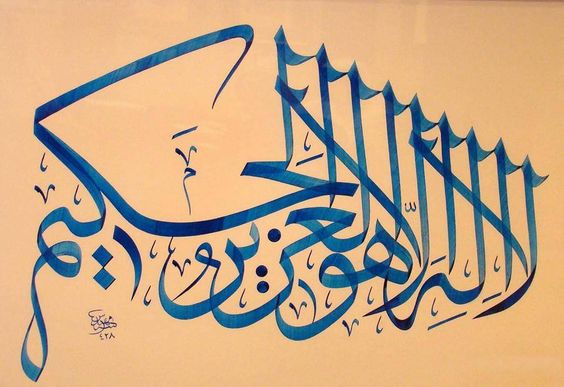 لا إله إلا هو العزيز الحكيم
٤٢٨